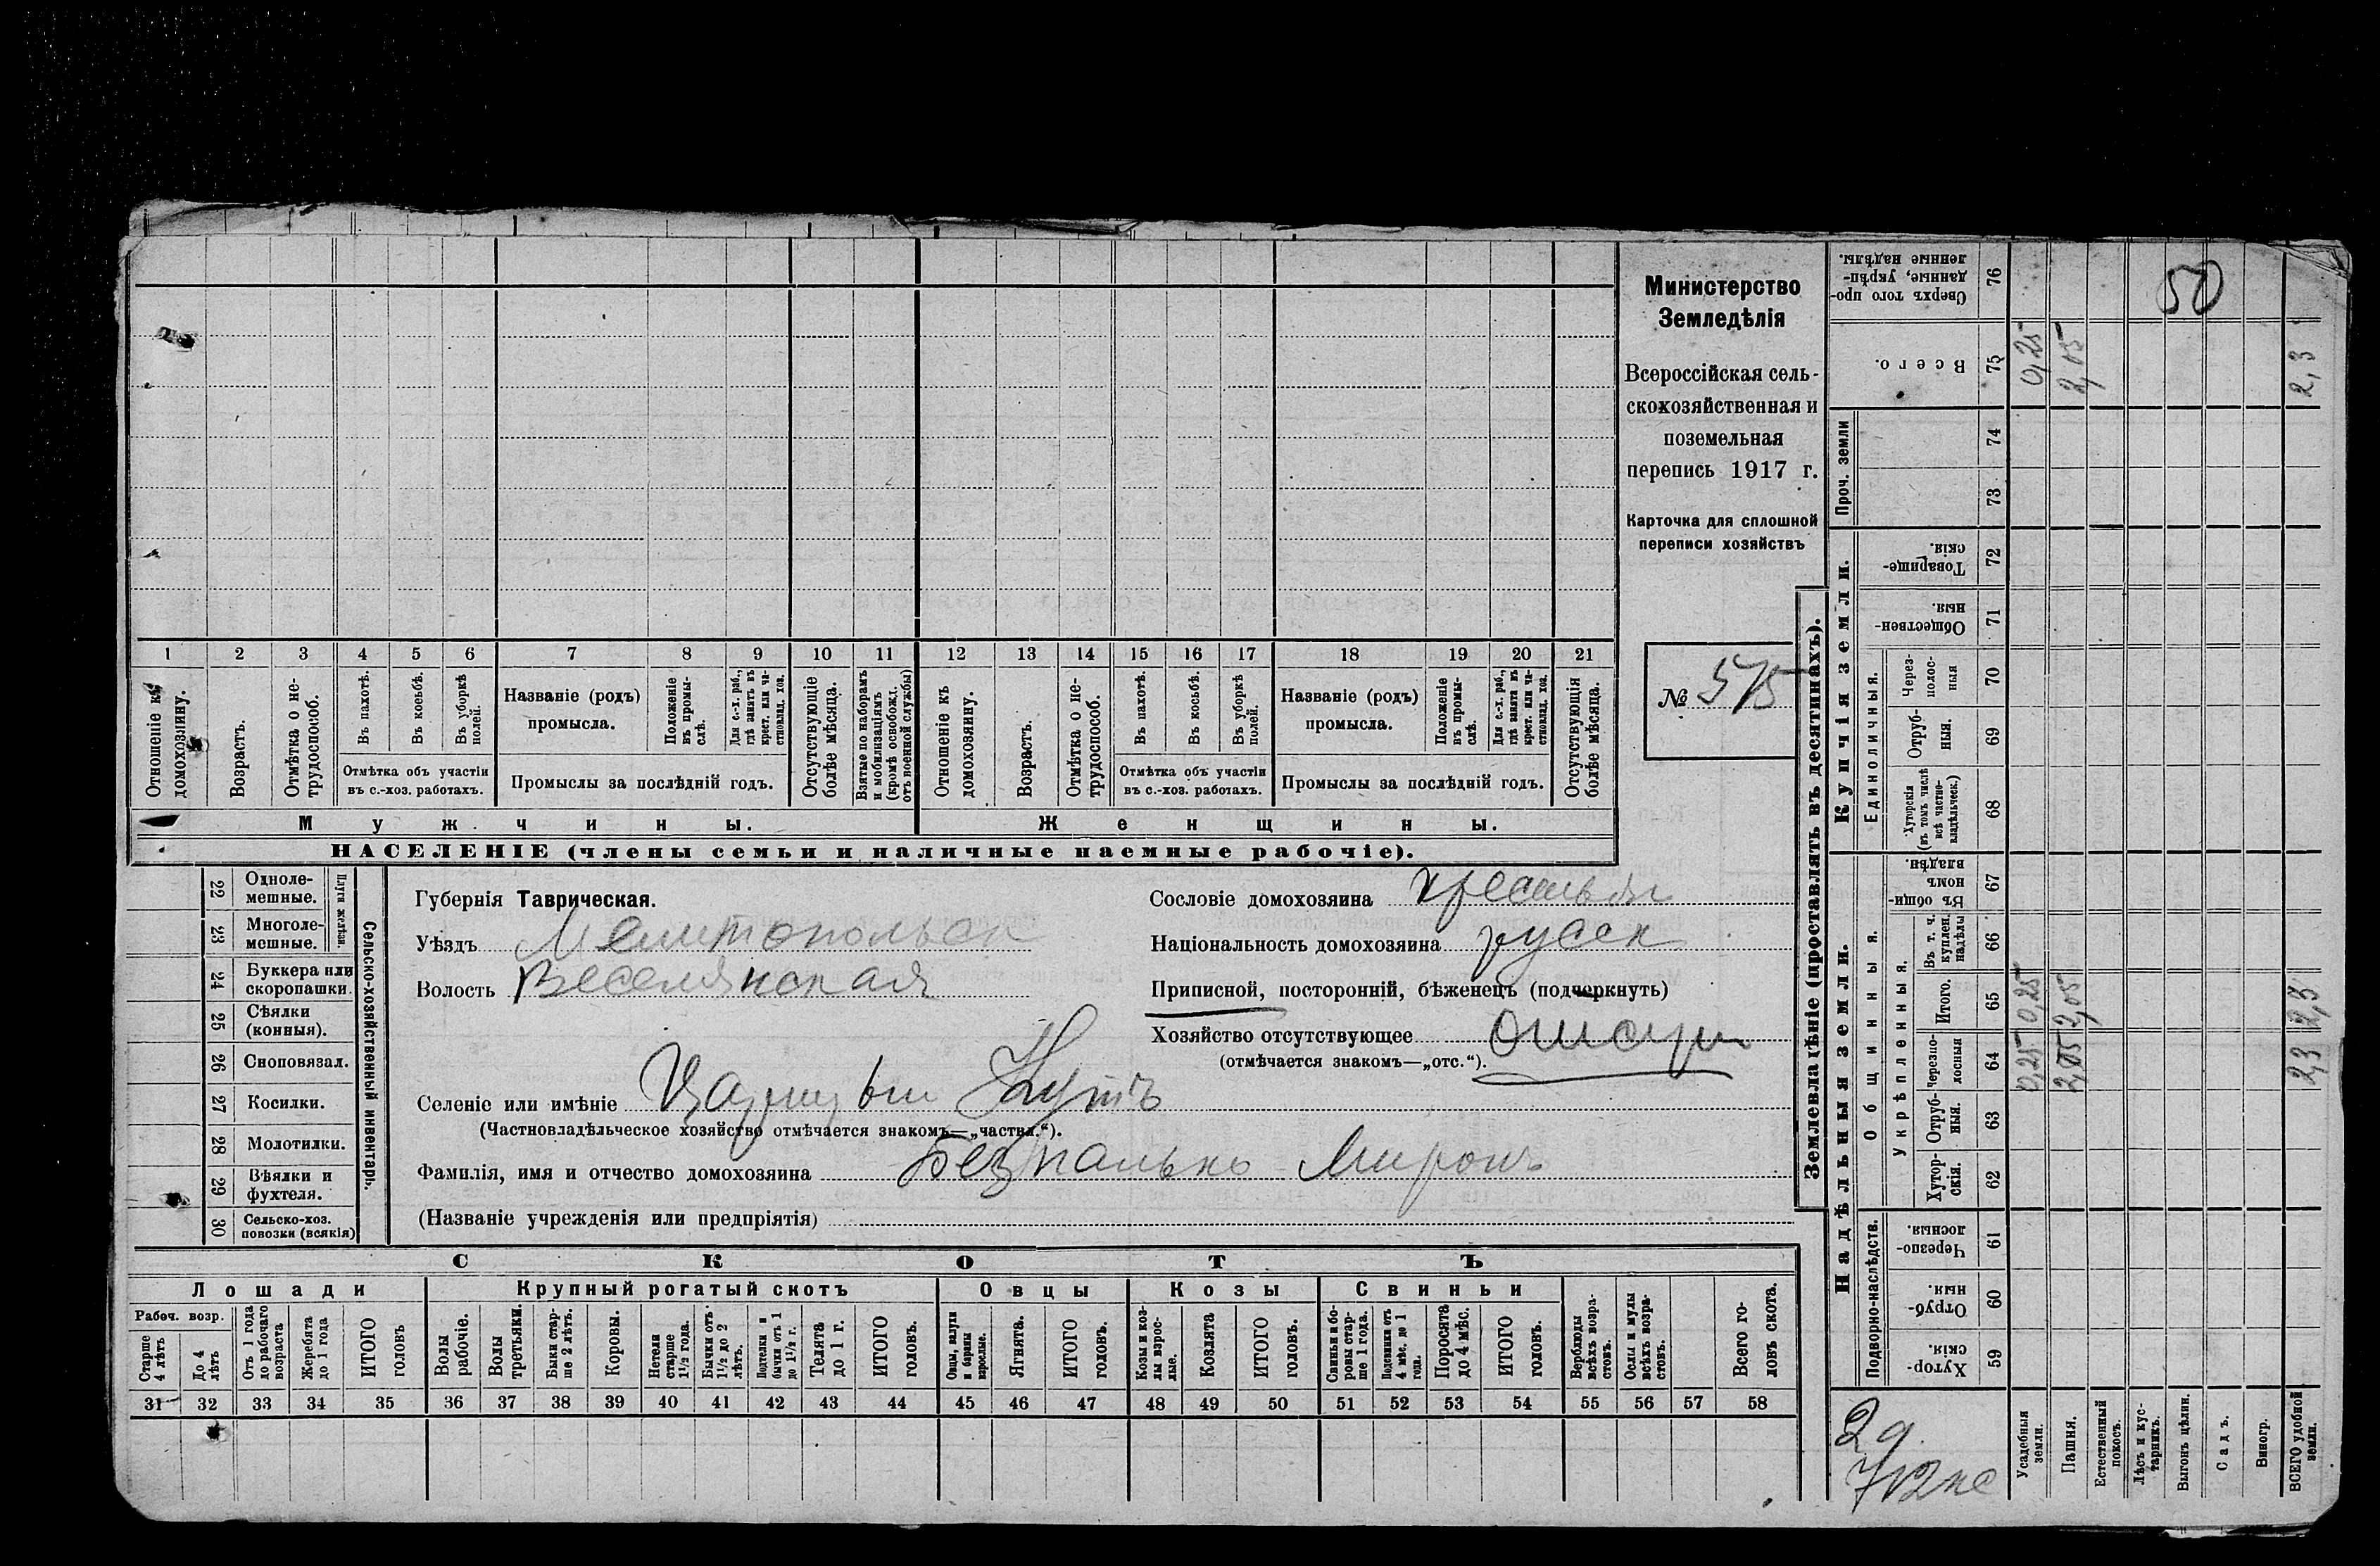 Министерство
Земледѣлія
Всероссійская сель-
скохозяйственная и
поземельная
перепись 1917 г.
Карточка для сплошной
переписи хозяйствъ
№ 515
1 2 3 4 5 6 7 8 9 10 11 12 13 14 15 16 17 18 19 20 21
Отношеніе къ домохозяину.
Возрастъ.
Отмѣтка о не-трудоспособ.
Въ пахотѣ.
Въ косьбѣ.
Въ уборкѣ полей.
Отмѣтка объ участіи
въ с.-хоз. работахъ.
Названіе (родъ)
промысла.
Положеніе въ промы-слѣ.
Для с.-х. раб., гдѣ занятъ въ крест. или ча-стновлад. хоз.
Промыслы за послѣдній годъ.
Отсутствующіе болѣе мѣсяца.
Взятые по наборамъ и мобилизаціямъ (кромѣ освобожд. отъ военной службы)
Отношеніе къ домохозяину.
Возрастъ.
Отмѣтка о не-трудоспособ.
Въ пахотѣ.
Въ косьбѣ.
Въ уборкѣ полей.
Отмѣтка объ участіи
въ с.-хоз. работахъ.
Названіе (родъ)
промысла.
Положеніе въ промы-слѣ.
Для с.-х. раб., гдѣ занята въ крест. или ча-стновлад. хоз.
Промыслы за послѣдній годъ.
Отсутствующія болѣе мѣсяца.
Мужчины.
Женщины.
НАСЕЛЕНІЕ (члены семьи и наличные наемные рабочіе).
Сельско-хозяйственный инвентарь.
Плуги желѣзн.
22 Одноле-мешные.
23 Многоле-мешные.
24 Буккера или скоропашки.
25 Сѣялки (конныя).
26 Сноповязал.
27 Косилки.
28 Молотилки.
29 Вѣялки и фухтеля.
30 Сельско-хоз. повозки (всякія)
Губернія Таврическая.
Уѣздъ Мелитопольск
Волость Веселянская
Сословіе домохозяина крестьян
Національность домохозяина русск
Приписной, посторонній, бѣженецъ (подчеркнуть)
Хозяйство отсутствующее отсут
(отмѣчается знакомъ—„отс.“).
Селеніе или имѣніе Кутъ
(Частновладѣльческое хозяйство отмѣчается знакомъ—„частвл.“).
Фамилія, имя и отчество домохозяина Безпалько Миронъ
(Названіе учрежденія или предпріятія)
СКОТЪ
Лошади
Крупный рогатый скотъ
Овцы
Козы
Свиньи
Рабоч. возр.
Старше 4 лѣтъ
До 4 лѣтъ
Отъ 1 года до рабочаго возраста
Жеребята до 1 года
ИТОГО головъ
Волы рабочіе.
Волы третьяки.
Быки стар-ше 2 лѣтъ.
Коровы.
Нетели старше 1½ года.
Бычки отъ 1½ до 2 лѣтъ.
Подтелки и бычки отъ 1 до 1½ г.
Телята до 1 г.
ИТОГО головъ.
Овцы, валухи и бараны взрослые.
Ягнята.
ИТОГО головъ.
Козы и коз-лы взрос-лые.
Козлята
ИТОГО головъ.
Свиньи и бо-ровы стар-ше 1 года.
Подсвинки отъ 4 мѣс. до 1 года.
Поросята до 4 мѣс.
ИТОГО головъ.
Верблюды всѣхъ возра-стовъ.
Ослы и мулы всѣхъ возра-стовъ.
Всего го-ловъ скота.
31 32 33 34 35 36 37 38 39 40 41 42 43 44 45 46 47 48 49 50 51 52 53 54 55 56 57 58
Землевладѣніе (проставлять въ десятинахъ).
Надѣльныя земли.
Купчія земли.
Проч. земли
Подворно-наслѣдств.
Общинныя.
Укрѣпленныя.
Единоличныя.
76 Сверхъ того про-данные, укрѣп-ленные надѣлы.
50
75 Всего. 0,25 2,05 2,3
74
73
72 Товарище-скія.
71 Обществен-ныя.
70 Через-полос-ныя
69 Отруб-ныя.
68 Хуторскія (въ томъ числѣ всѣ частно-владѣльческ.)
67 Въ общи-номъ владѣн.
66 Въ т. ч. куплен. надѣлы
65 Итого. 0,25 2,05 2,3
64 Черезпо-лосныя 0,25 2,05 2,3
63 Отруб-ныя.
62 Хутор-скія.
61 Черезпо-лосныя.
60 Отруб-ныя.
59 Хутор-скія.
Усадебныя земли.
Пашня.
Естественный покосъ.
Лѣсъ и кус-тарникъ.
Выгонъ цѣлин.
Садъ.
Виногр.
ВСЕГО удобной земли.
2д